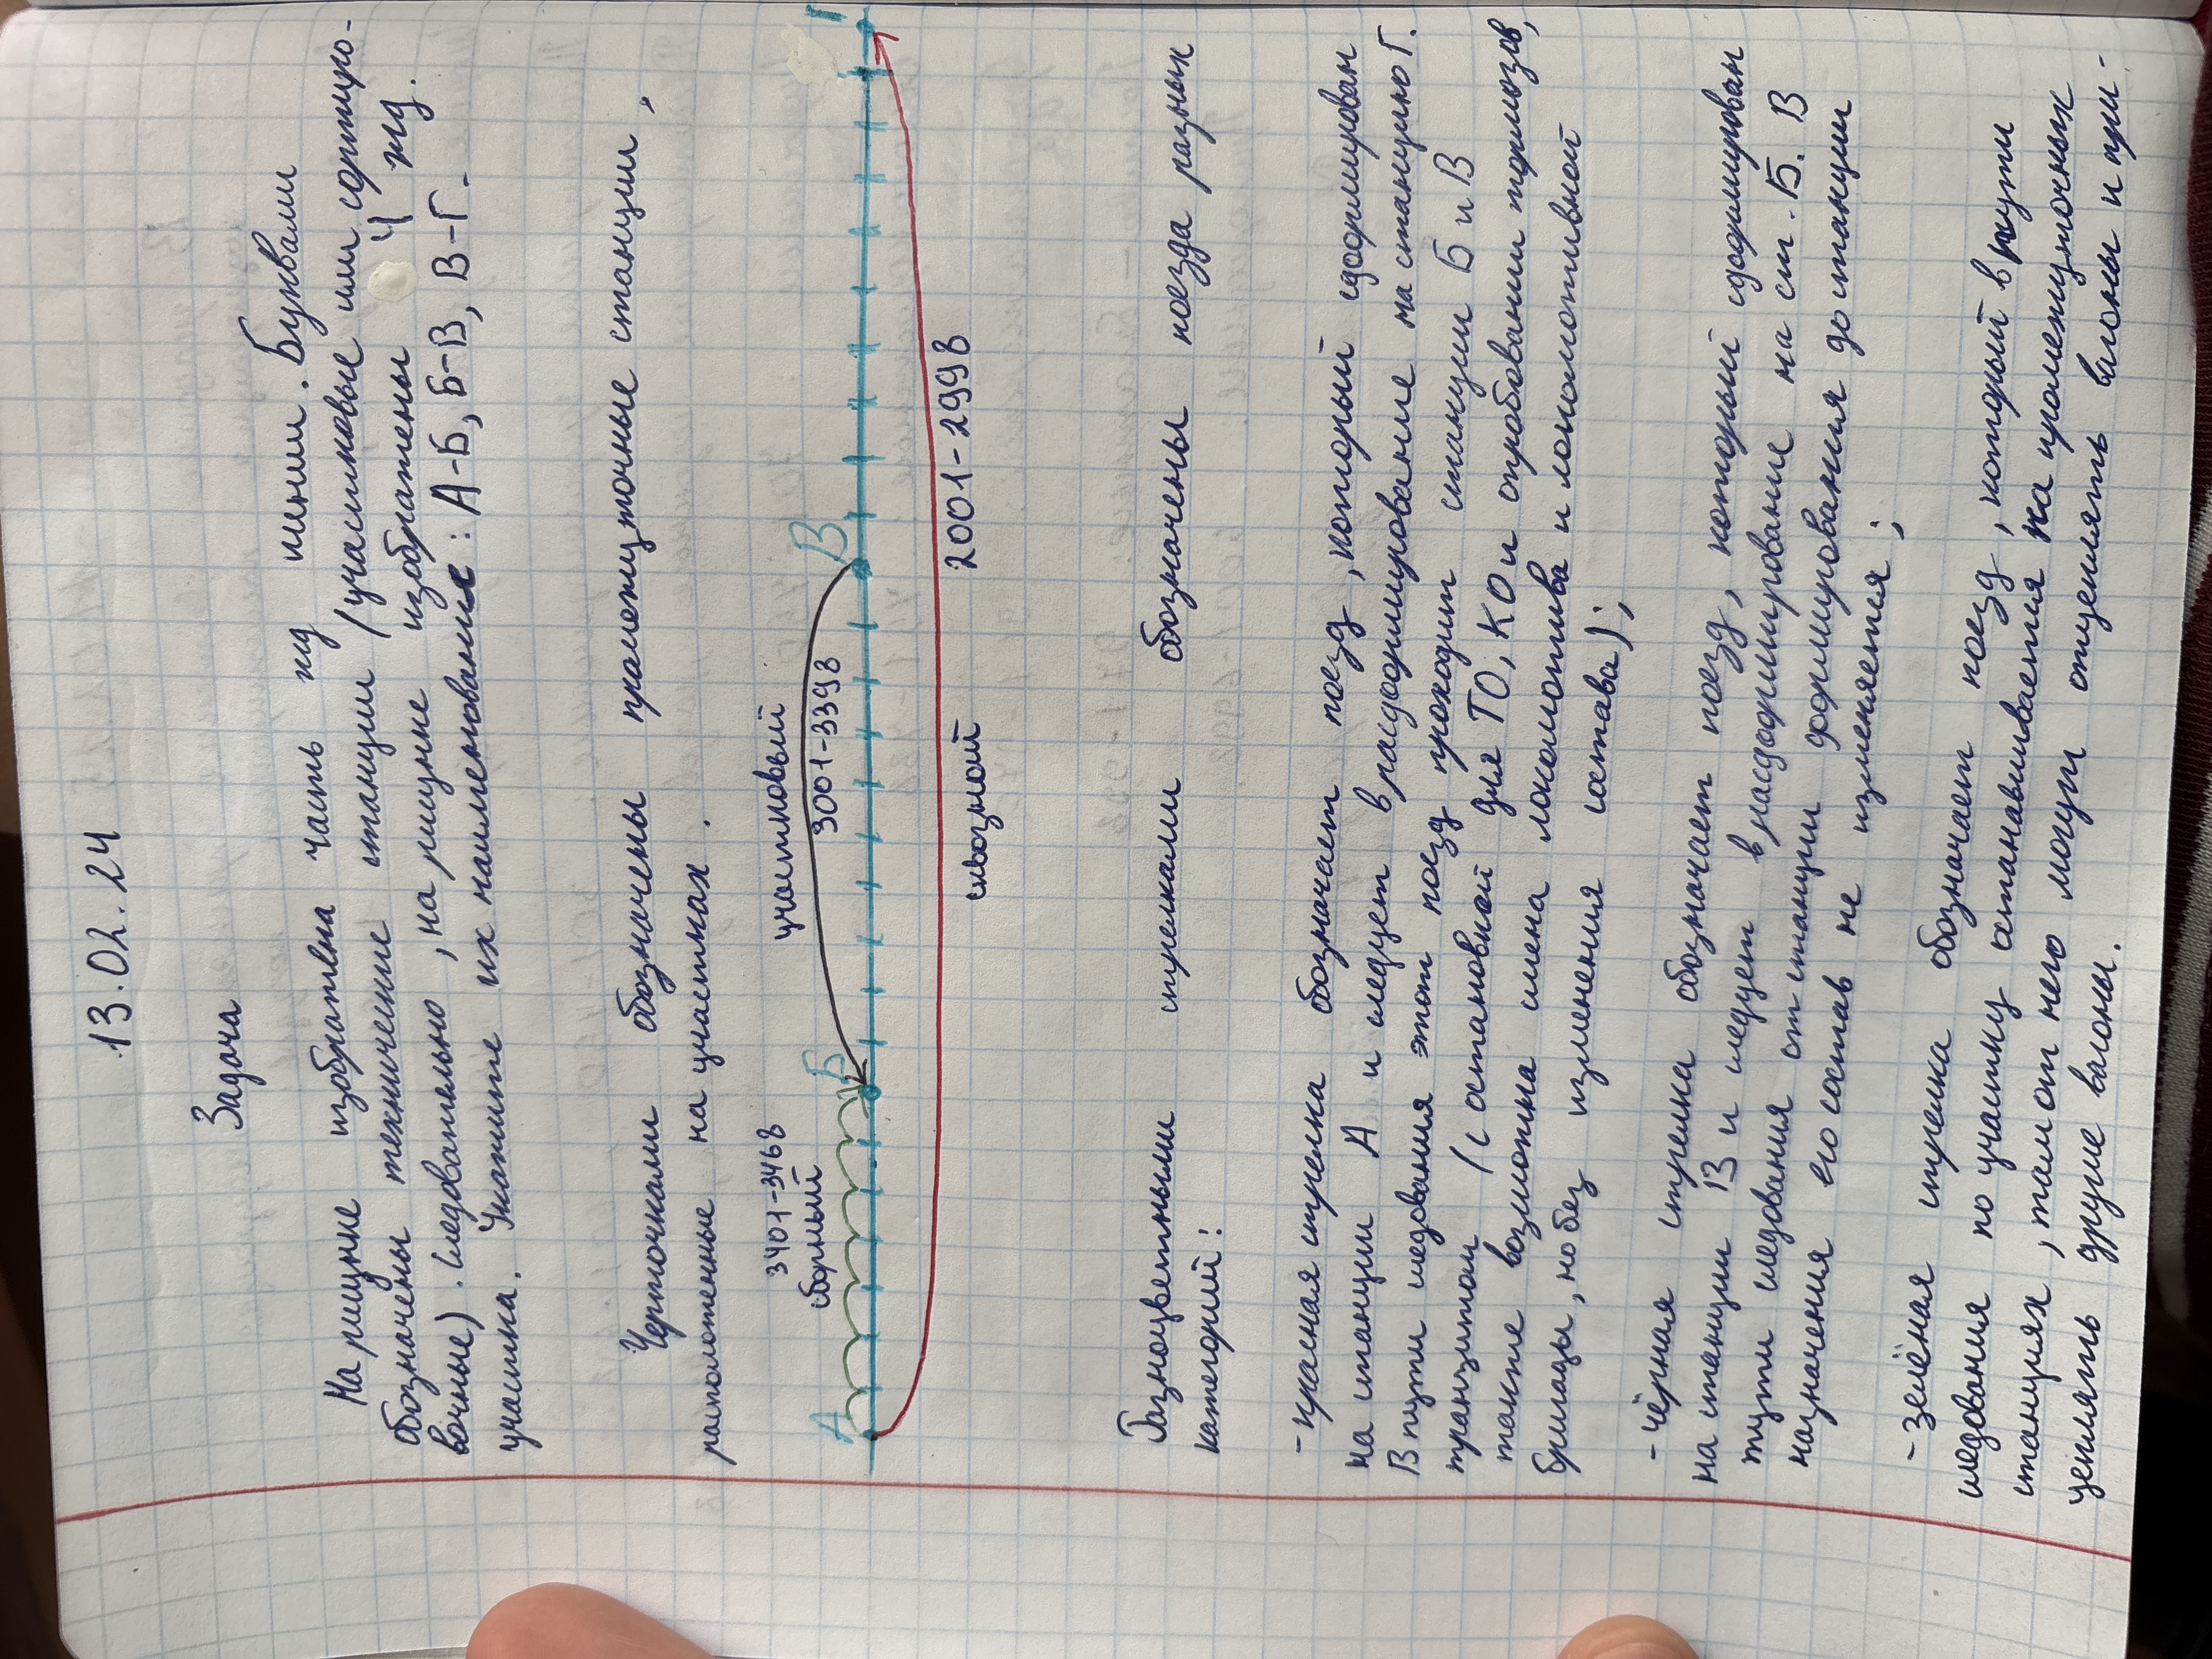 13.02.24
Задача
На рисунке изображена часть жд линии. Буквами
обозначены технические станции (участковые или сортиро-
вочные). Следовательно, на рисунке изображены 4 жд.
участка. Укажите их наименование: А-Б, Б-В, В-Г.
Черточками обозначены промежуточные станции,
расположенные на участках.
3401-3468
сборный
участковый
3001-3398
А Б В Г
2001-2998
сквозной
Разноцветными стрелками обозначены поезда разных
категорий:
- красная стрелка обозначает поезд, который сформирован
на станции А и следует в расформирование на станцию Г.
В пути следования этот поезд проходит станции Б и В
транзитом (с остановкой для ТО, КО и опробовании тормозов,
также возможна смена локомотива и локомотивной
бригады, но без изменения состава);
- чёрная стрелка обозначает поезд, который сформирован
на станции В и следует в расформирование на ст. Б. В
пути следования от станции формирования до станции
назначения его состав не изменяется;
- зелёная стрелка обозначает поезд, который в пути
следования по участку останавливается на промежуточных
станциях, там от него могут отцеплять вагоны и при-
цеплять другие вагоны.